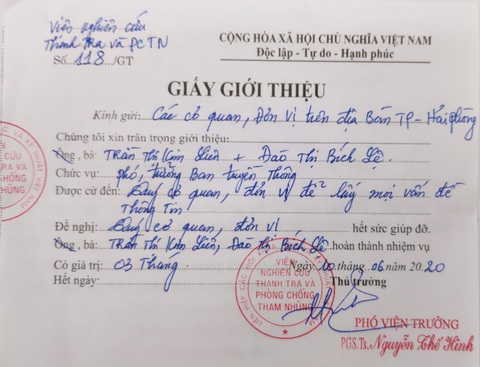 Viện nghiên cứu
Thanh tra và PCTN
Số 118/GT
CỘNG HÒA XÃ HỘI CHỦ NGHĨA VIỆT NAM
Độc lập - Tự do - Hạnh phúc
GIẤY GIỚI THIỆU
Kính gửi: Các cơ quan, Đơn vị trên địa Bàn TP - Hải phòng
Chúng tôi xin trân trọng giới thiệu:
Ông, bà: Trần Thị Kim Liên + Đào Thị Bích Lệ.
Chức vụ: phó, trưởng Ban truyền thông
Được cử đến: Quý cơ quan, đơn vị để lấy mọi vấn đề
Thông Tin
Đề nghị: Quý cơ quan, đơn vị hết sức giúp đỡ.
Ông, bà: Trần Thị Kim Liên, Đào thị Bích Lệ hoàn thành nhiệm vụ
Có giá trị: 03 Tháng. Ngày 10 tháng 06 20.20
Hết ngày: Thủ trưởng
VIỆN
NGHIÊN CỨU
THANH TRA VÀ
PHÒNG CHỐNG
THAM NHŨNG
PHÓ VIỆN TRƯỞNG
PGS.Ts. Nguyễn Thế Kinh